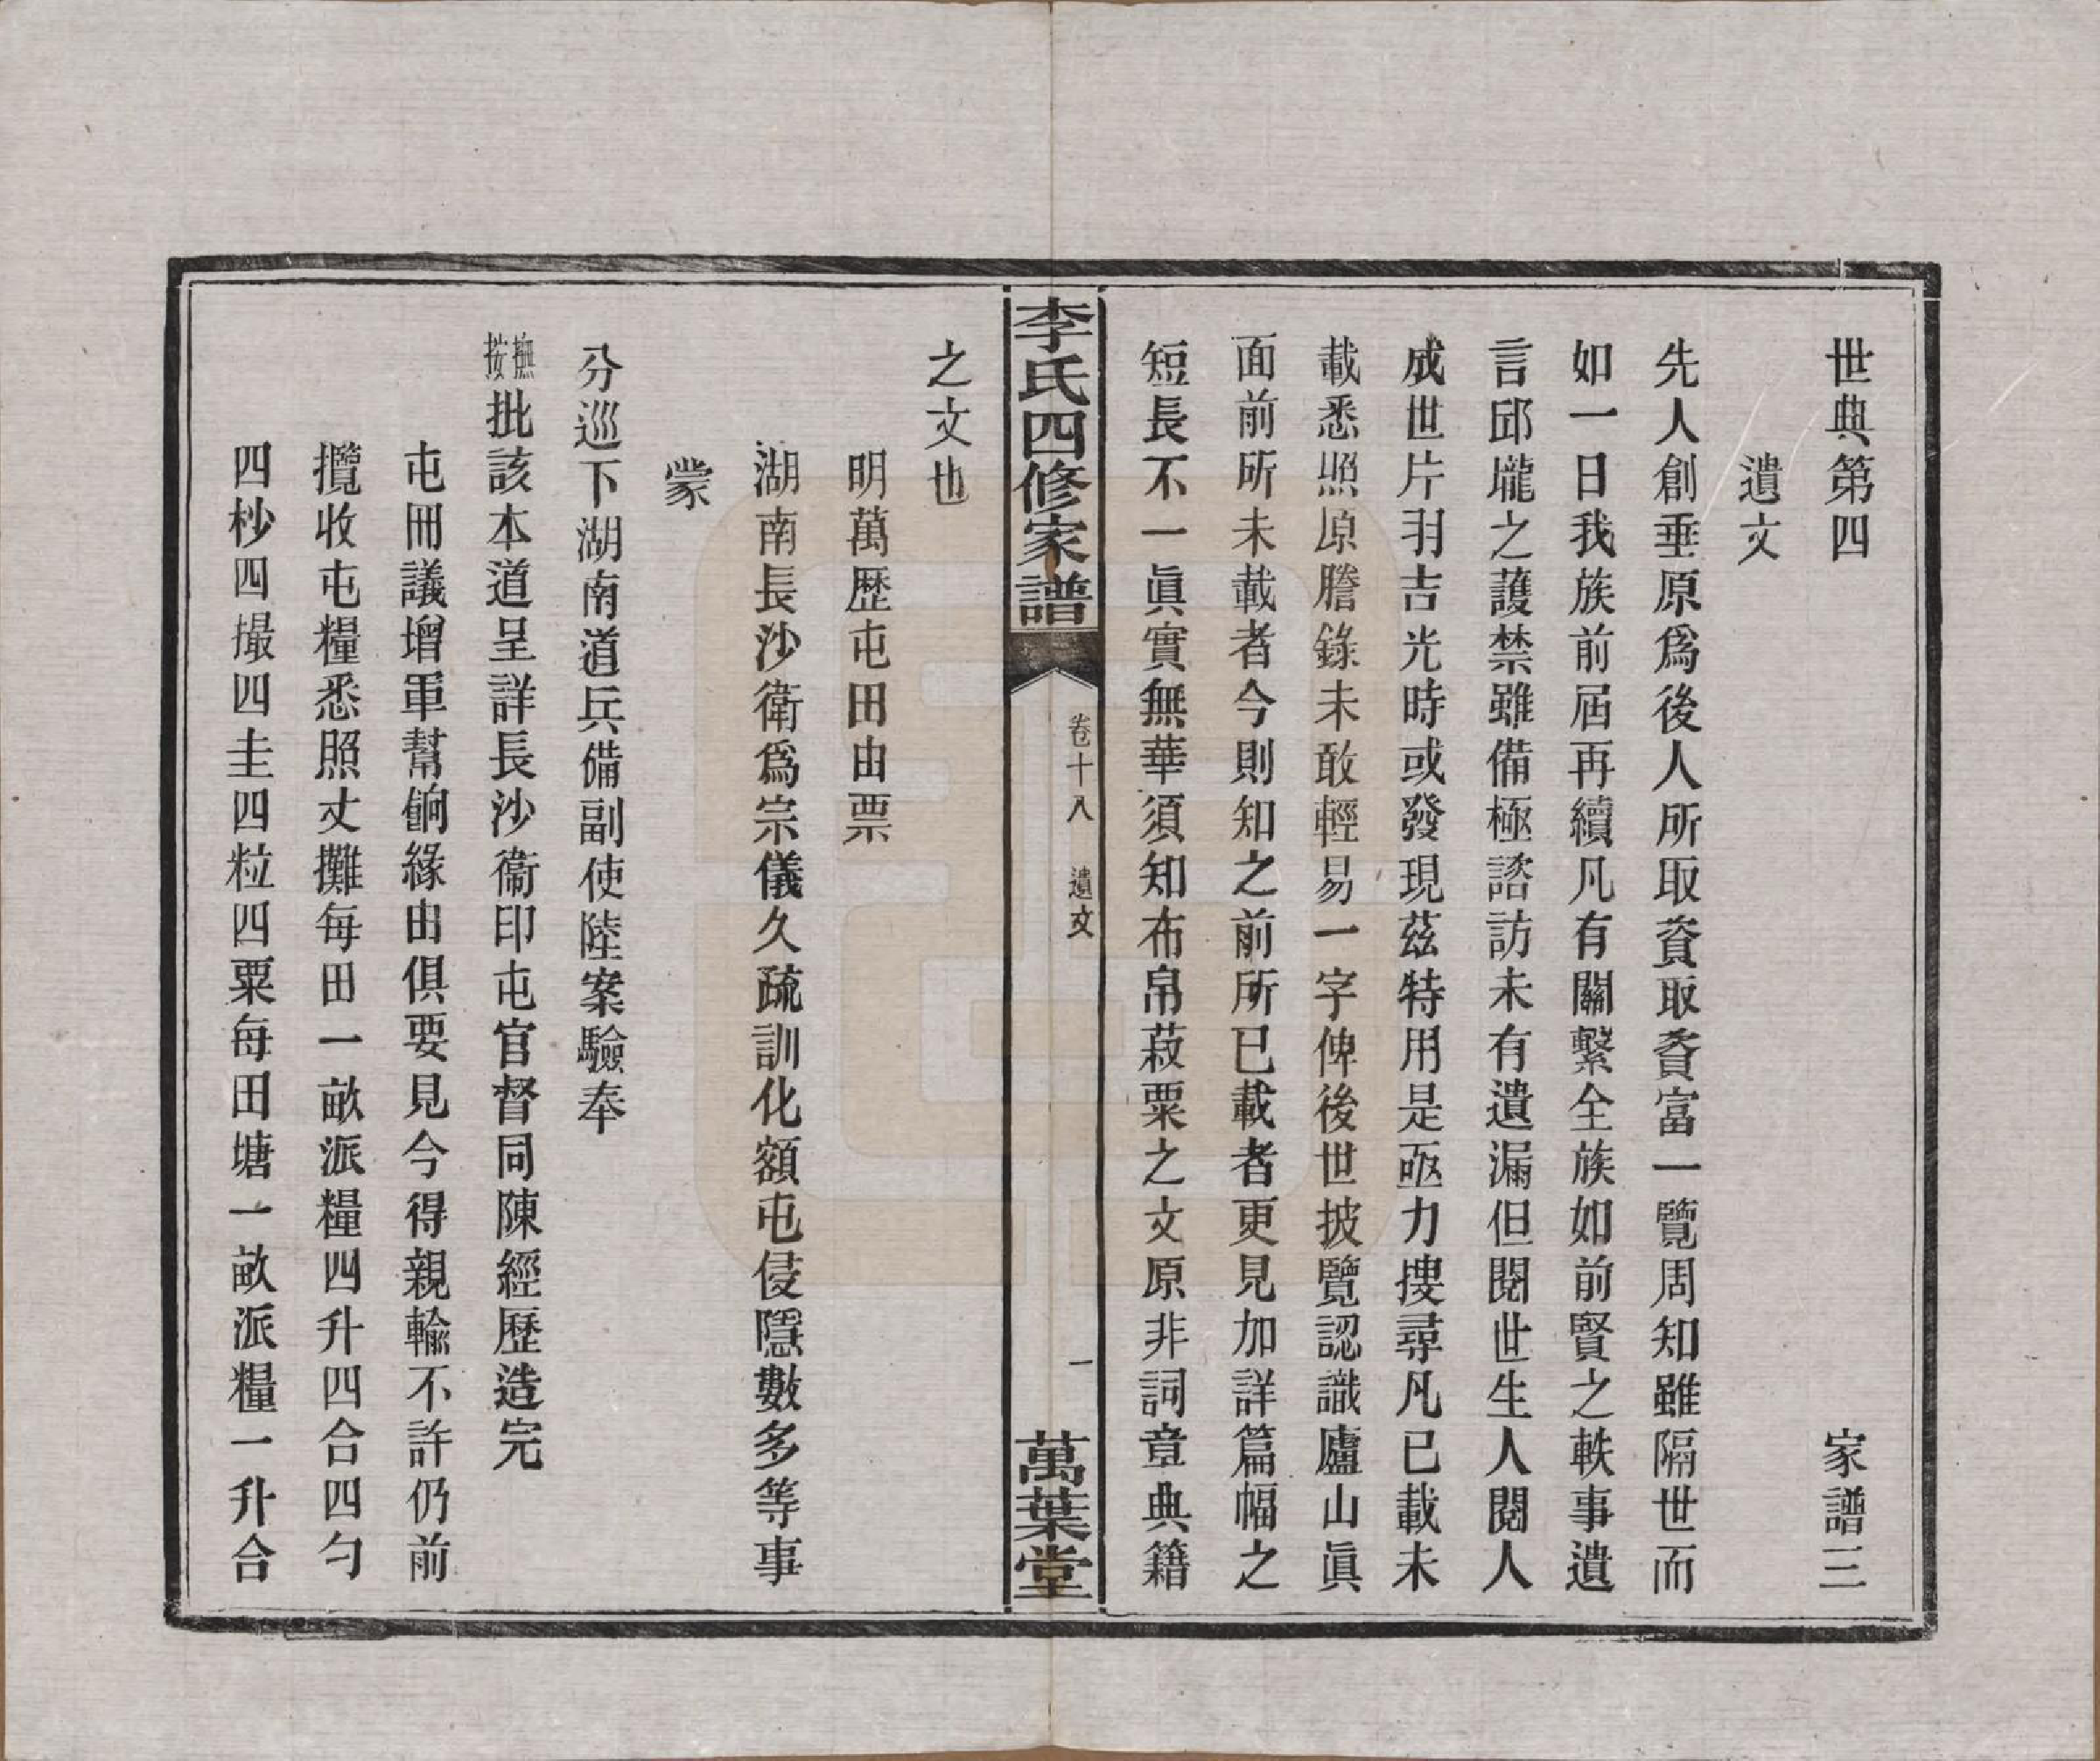 世典第四　家譜三
遺文
先人創垂原爲後人所取資取賚富一覽周知雖隔世而
如一日我族前屆再續凡有關繫全族如前賢之軼事遺
言邱壠之護禁雖備極諮訪未有遺漏但閱世生人人閱人
成世片羽吉光時或發現茲特用是亟力搜尋凡已載未
載悉照原謄錄未敢輕易一字俾後世披覽認識廬山眞
面前所未載者今則知之前所已載者更見加詳篇幅之
短長不一眞實無華須知布帛菽粟之文原非詞章典籍
李氏四修家譜
卷十八　遺文
一
萬葉堂
之文也
明萬歷屯田由票
湖南長沙衛爲宗儀久疏訓化額屯侵隱數多等事
蒙
分巡下湖南道兵備副使陸案驗奉
撫按批該本道呈詳長沙衞印屯官督同陳經歷造完
屯冊議增軍幫餉緣由俱要見今得親輸不許仍前
攬收屯糧悉照丈攤每田一畝派糧四升四合四勺
四杪四撮四圭四粒四粟每田塘一畝派糧一升合